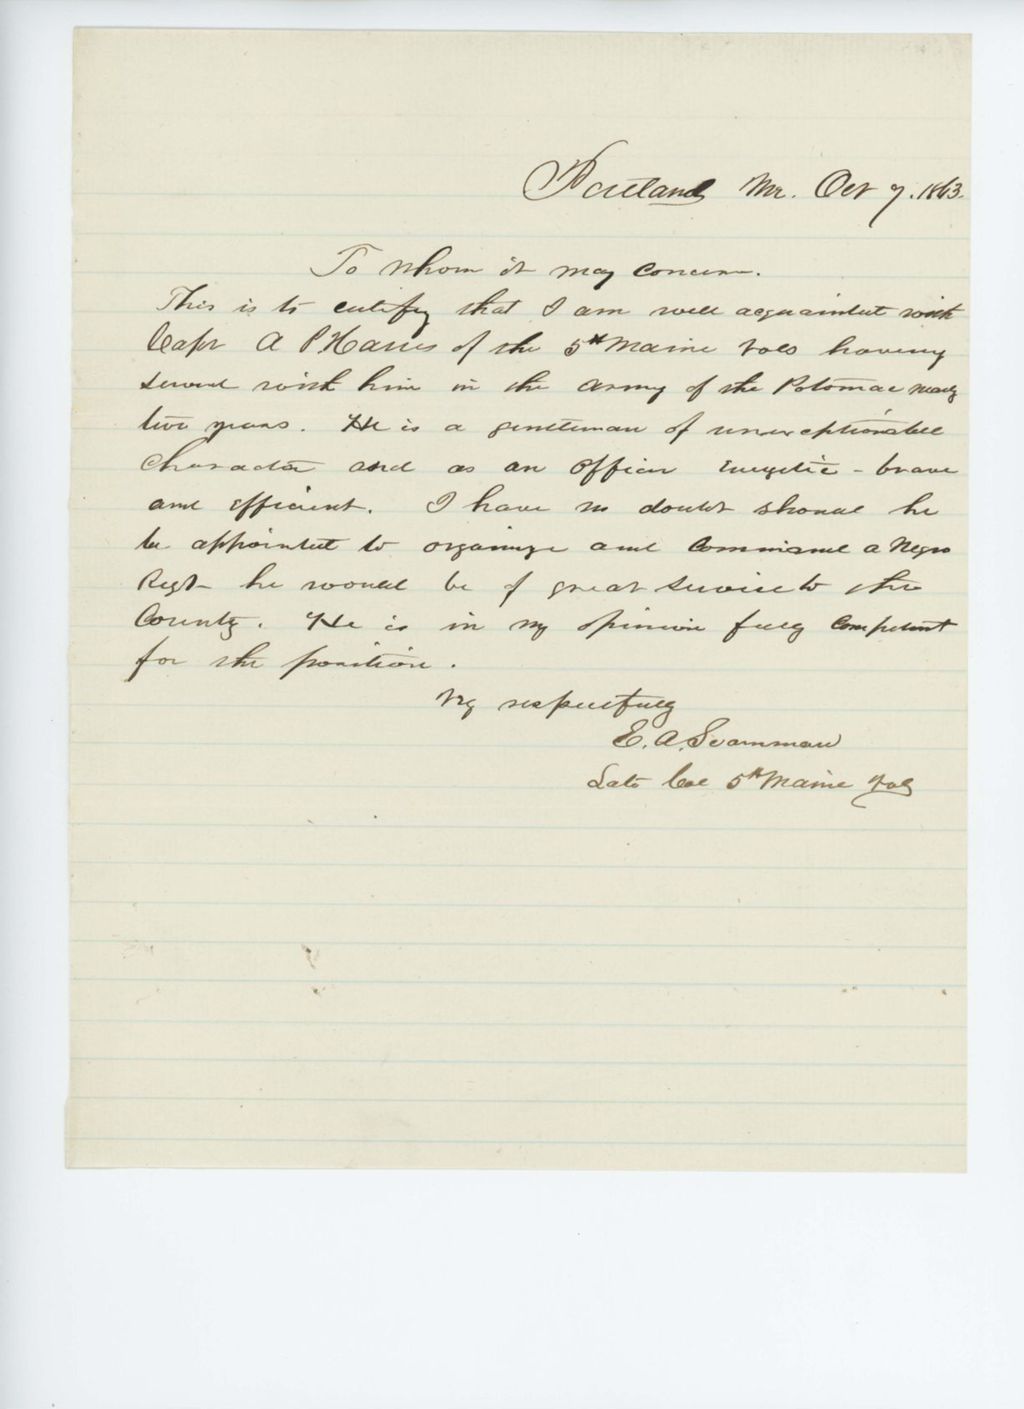 Portland Me. Oct 7. 1863.
To whom it may Concern.
This is to certify that I am well acquainted with
Capt A P Harris of the 5th Maine Vols having
served with him in the Army of the Potomac nearly
two years. He is a gentleman of unexceptionable
Character and as an officer Energetic - brave
and efficient. I have no doubt should he
be appointed to organize and Command a Negro
Regt - he would be of great service to the
Country. He is in my opinion fully Competent
for the position.
Vry respectfully
E. A. Scammon
Late Col 5th Maine Vols